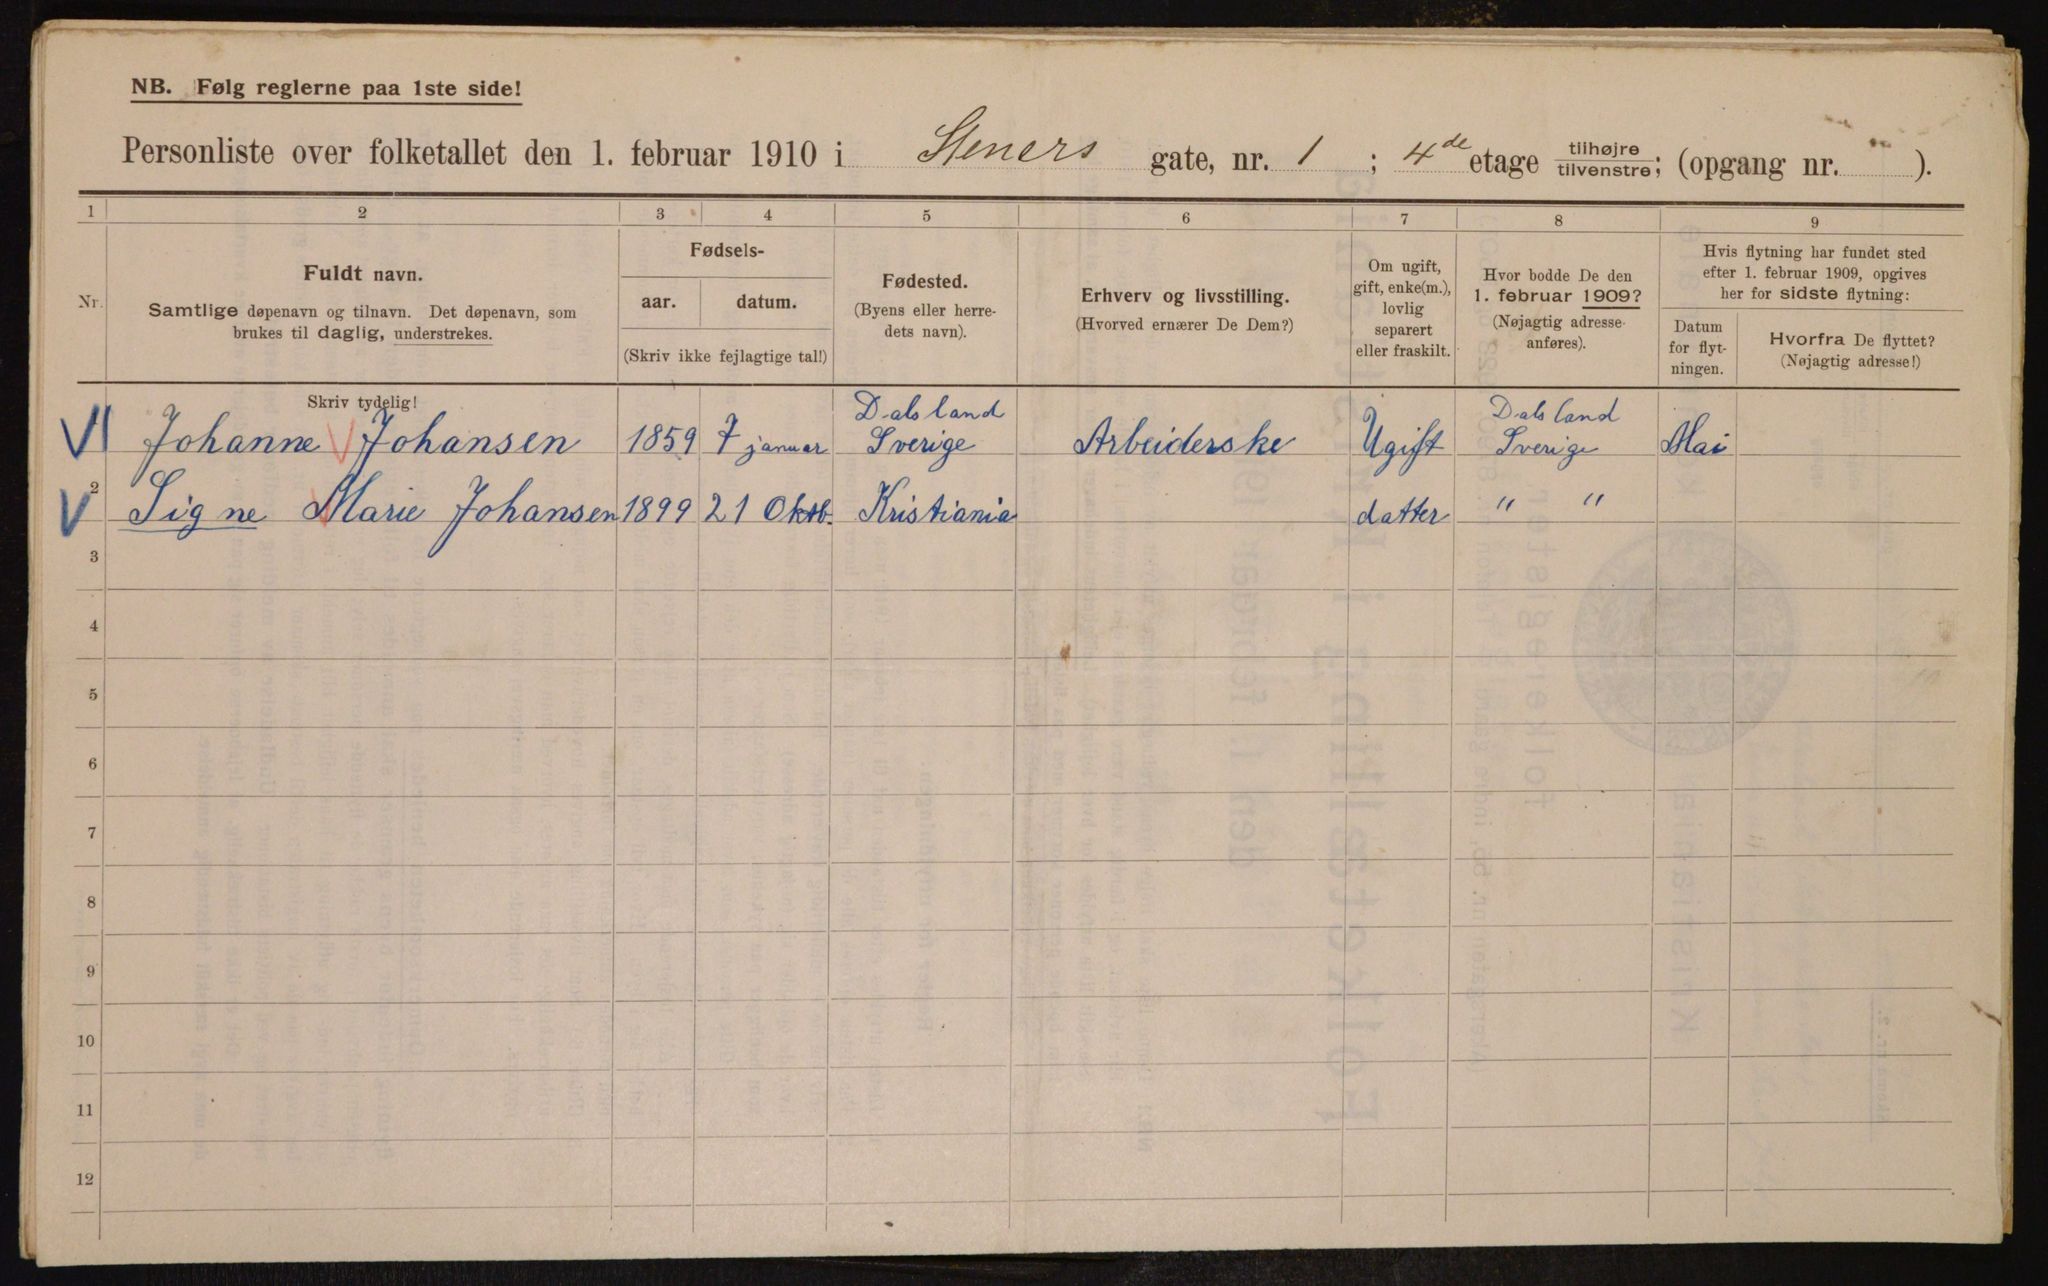 NB. Følg reglerne paa 1ste side!
Personliste over folketallet den 1. februar 1910 i Steners gate, nr. 1 ; 4de etage tilhøjre / tilvenstre ; (opgang nr. ).
1 2 3 4 5 6 7 8 9
Nr.
Fuldt navn.
Samtlige døpenavn og tilnavn. Det døpenavn, som
brukes til daglig, understrekes.
Fødsels-
aar. datum.
(Skriv ikke fejlagtige tal!)
Fødested.
(Byens eller herre-
dets navn).
Erhverv og livsstilling.
(Hvorved ernærer De Dem?)
Om ugift,
gift, enke(m.),
lovlig
separert
eller fraskilt.
Hvor bodde De den
1. februar 1909?
(Nøjagtig adresse
anføres).
Hvis flytning har fundet sted
efter 1. februar 1909, opgives
her for sidste flytning:
Datum
for flyt-
ningen.
Hvorfra De flyttet?
(Nøjagtig adresse!)
Skriv tydelig!
Dalsland Dalsland
1 Johanne Johansen 1859 7 januar Sverige Arbeiderske Ugift Sverige Mai
2 Signe Marie Johansen 1899 21 Oktb. Kristiania datter " "
3
4
5
6
7
8
9
10
11
12